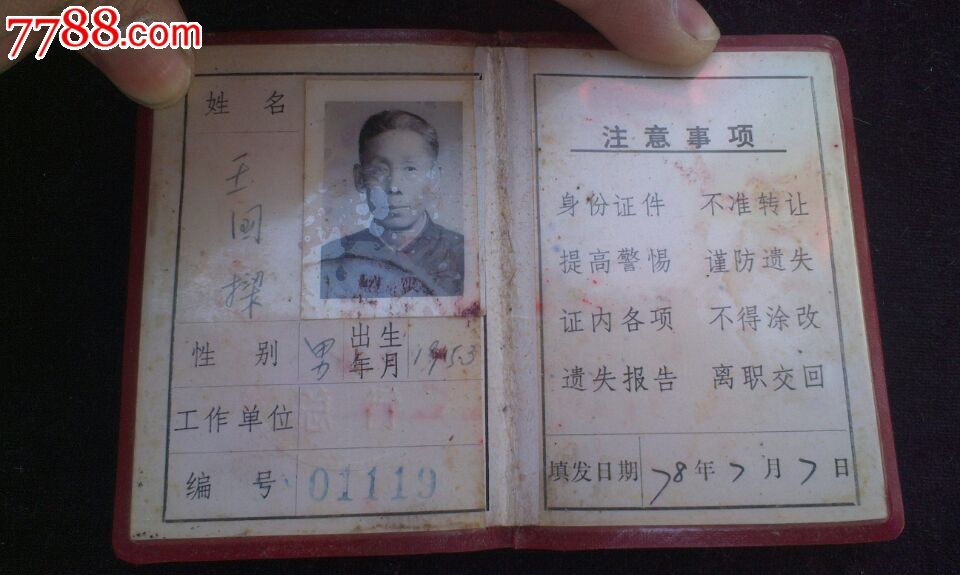 7788.com
姓 名
王国樑
性 别 男 出生年月 1915.3
工作单位
编 号 01119
注意事项
身份证件 不准转让
提高警惕 谨防遗失
证内各项 不得涂改
遗失报告 离职交回
填发日期 78年7月7日